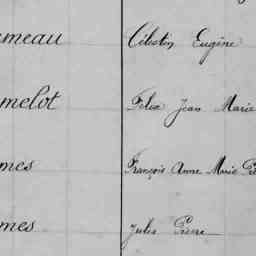 meau Célestin Eugène
melot Félix Jean Marie
mes François Anne Marie
mes Jules Pierre